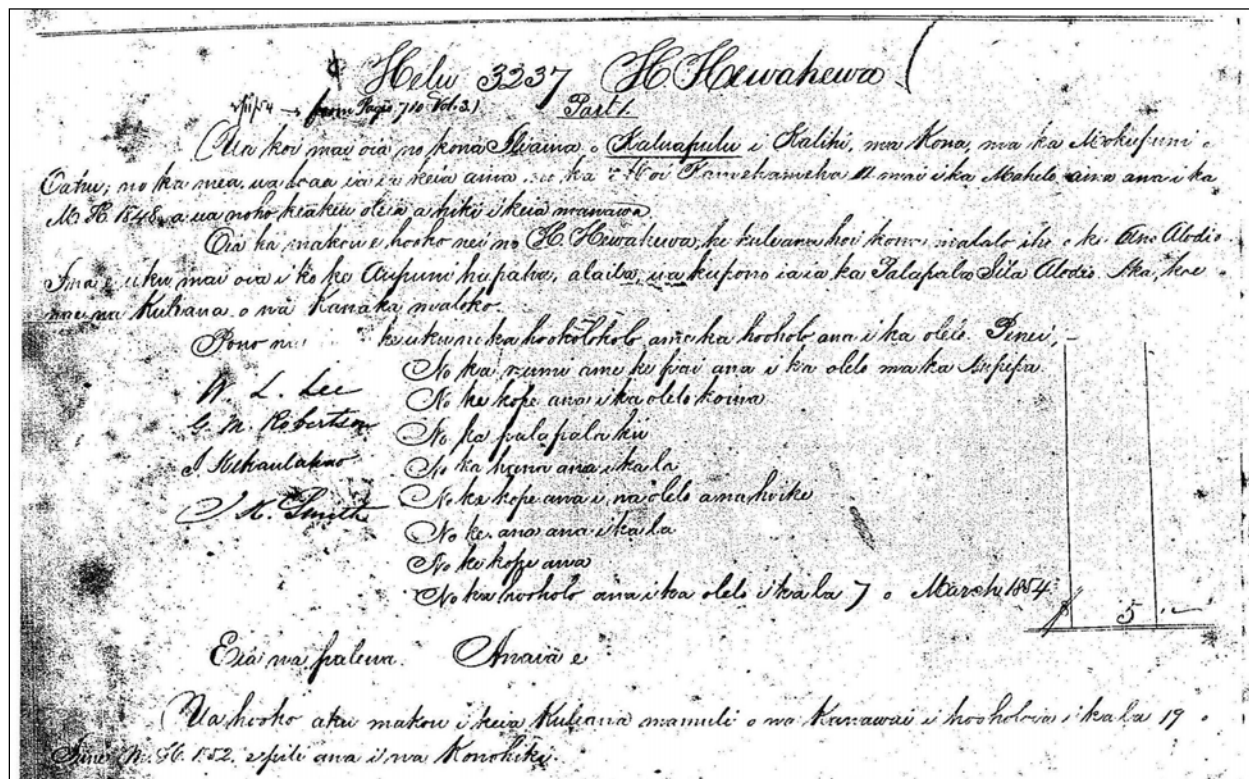 Helu 3237 H. Hewahewa
from Page 710 Vol. 3.) Part 1.
Ua koi mai oia no kona Iliaina o Kaluapulu i Kalihi, ma Kona, ma ka Mokupuni o
Oahu; no ka mea, ua loaa ia ia keia aina no ka Moi Kamehameha III mai i ka Mahele aina ana i ka
M.H. 1848, a ua noho kuakeu oleia a hiki i keia manawa.
Oia ka makou e hooko nei no H. Hewahewa, ke kuleana hoi kona malalo iho o ke Ano Alodio.
Ina e uku mai oia i ko ke Aupuni hapaha, alaila, ua kupono iaia ka Palapala Sila Alodio. Aka, koe
nae na Kuleana o na Kanaka maloko.
Pono ke uku no ka hookolokolo ame ka hooholo ana i ka olelo. Penei,
No ka rumi ame ke pai ana i ka olelo ma ka Nupepa
W. L. Lee No ke kope ana i ka olelo koina
G. M. Robertson No ka palapala kii
J. Kekaulahao No ka hana ana i ka la
J. H. Smith No ke kope ana i na olelo ana hoike
No ke ana ana i ka la
No ke kope ana
No ka hooholo ana i ka olelo i ka la 7 o March 1854. $ 5
Eia na palena. Anaia e
Ua hooko aku makou i keia Kuleana mamuli o na Kanawai i hooholoia i ka la 19 o
June M.H. 1852, e pili ana i na Konohiki.